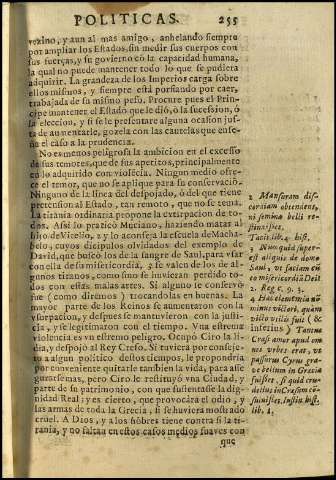 POLITICAS. 255
vezino, y aun al mas amigo, anhelando siempre
por ampliar los Estados, sin medir sus cuerpos con
sus fuerças, y su govierno cõ la capacidad humana,
la qual no puede mantener todo lo que se pudiera
adquirir. La grandeza de los Imperios carga sobre
ellos mismos, y siempre está porfiando por caer,
trabajada de su mismo peso. Procure pues el Prin-
cipe mantener el Estado que le diò, ò la sucession, ò
la eleccion, y si se le presentare alguna ocasion jus-
ta de aumentarle, gozela con las cautelas que ense-
ña el caso a la prudencia.
No es menos peligrosa la ambicion en el excesso
de sus temores, que de sus apetitos, principalmente
en lo adquirido con violẽcia. Ningun medio ofre-
ce el temor, que no se aplique para su conservaciõ.
Ninguno de la linea del despojado, ò del que tiene
pretension al Estado, tan remoto, que no se tema.
La tirania ordinaria propone la extirpacion de to-
dos. Assi lo praticò Muciano, haziendo matar al
hijo de Vitelio, y lo aconseja la escuela de Macha-
belo, cuyos dicipulos olvidados del exemplo de
David, que buscò los de la sangre de Saul, para usar
con ellos de su misericordia, se valen de los de al-
gunos tiranos, como sino se huvieran perdido to-
dos con estas malas artes. Si alguno se conservò
(como diremos) trocandolas en buenas. La
mayor parte de los Reinos se aumentaron con la
usurpacion, y despues se mantuvieron con la justi-
cia, y se legitimaron con el tiempo. Vna estrema
violencia es un estremo peligro. Ocupò Ciro la li-
dia, y despojò al Rey Creso. Si tuviera por conseje-
ro a algun politico destos tiempos, le propondria
por conveniente quitarle tambien la vida, para asse-
gurarse mas, pero Ciro le restituyò una Ciudad, y
parte de su patrimonio, con que sustentasse la dig-
nidad Real; y es cierto, que provocara el odio, y
las armas de toda la Grecia, si se huviera mostrado
cruel. A Dios, y a los hõbres tiene contra si la ti-
rania, y no faltan en estos casos medios suaves con
que
2 Mansuram dis-
cordiam obtendens,
ni semina belli re-
stinxisset,
Tacit. lib. 4. hist.
3 Num quid super-
est aliquis de domo
Saul, ut faciam cũ
eo misericordiã Dei?
2. Reg. c. 9. 3.
4 Hæc clementia nõ
minus victori, quam
victo utilis fuit (&
inferius) Tantus
Crœsi amor apud om-
nes urbes erat, ut
passurus Cyrus gra-
ve bellum in Grecia
fuisset, si quid cru-
delius in Crœsum cõ-
suluisset. Iustin. hist.
lib. 1.